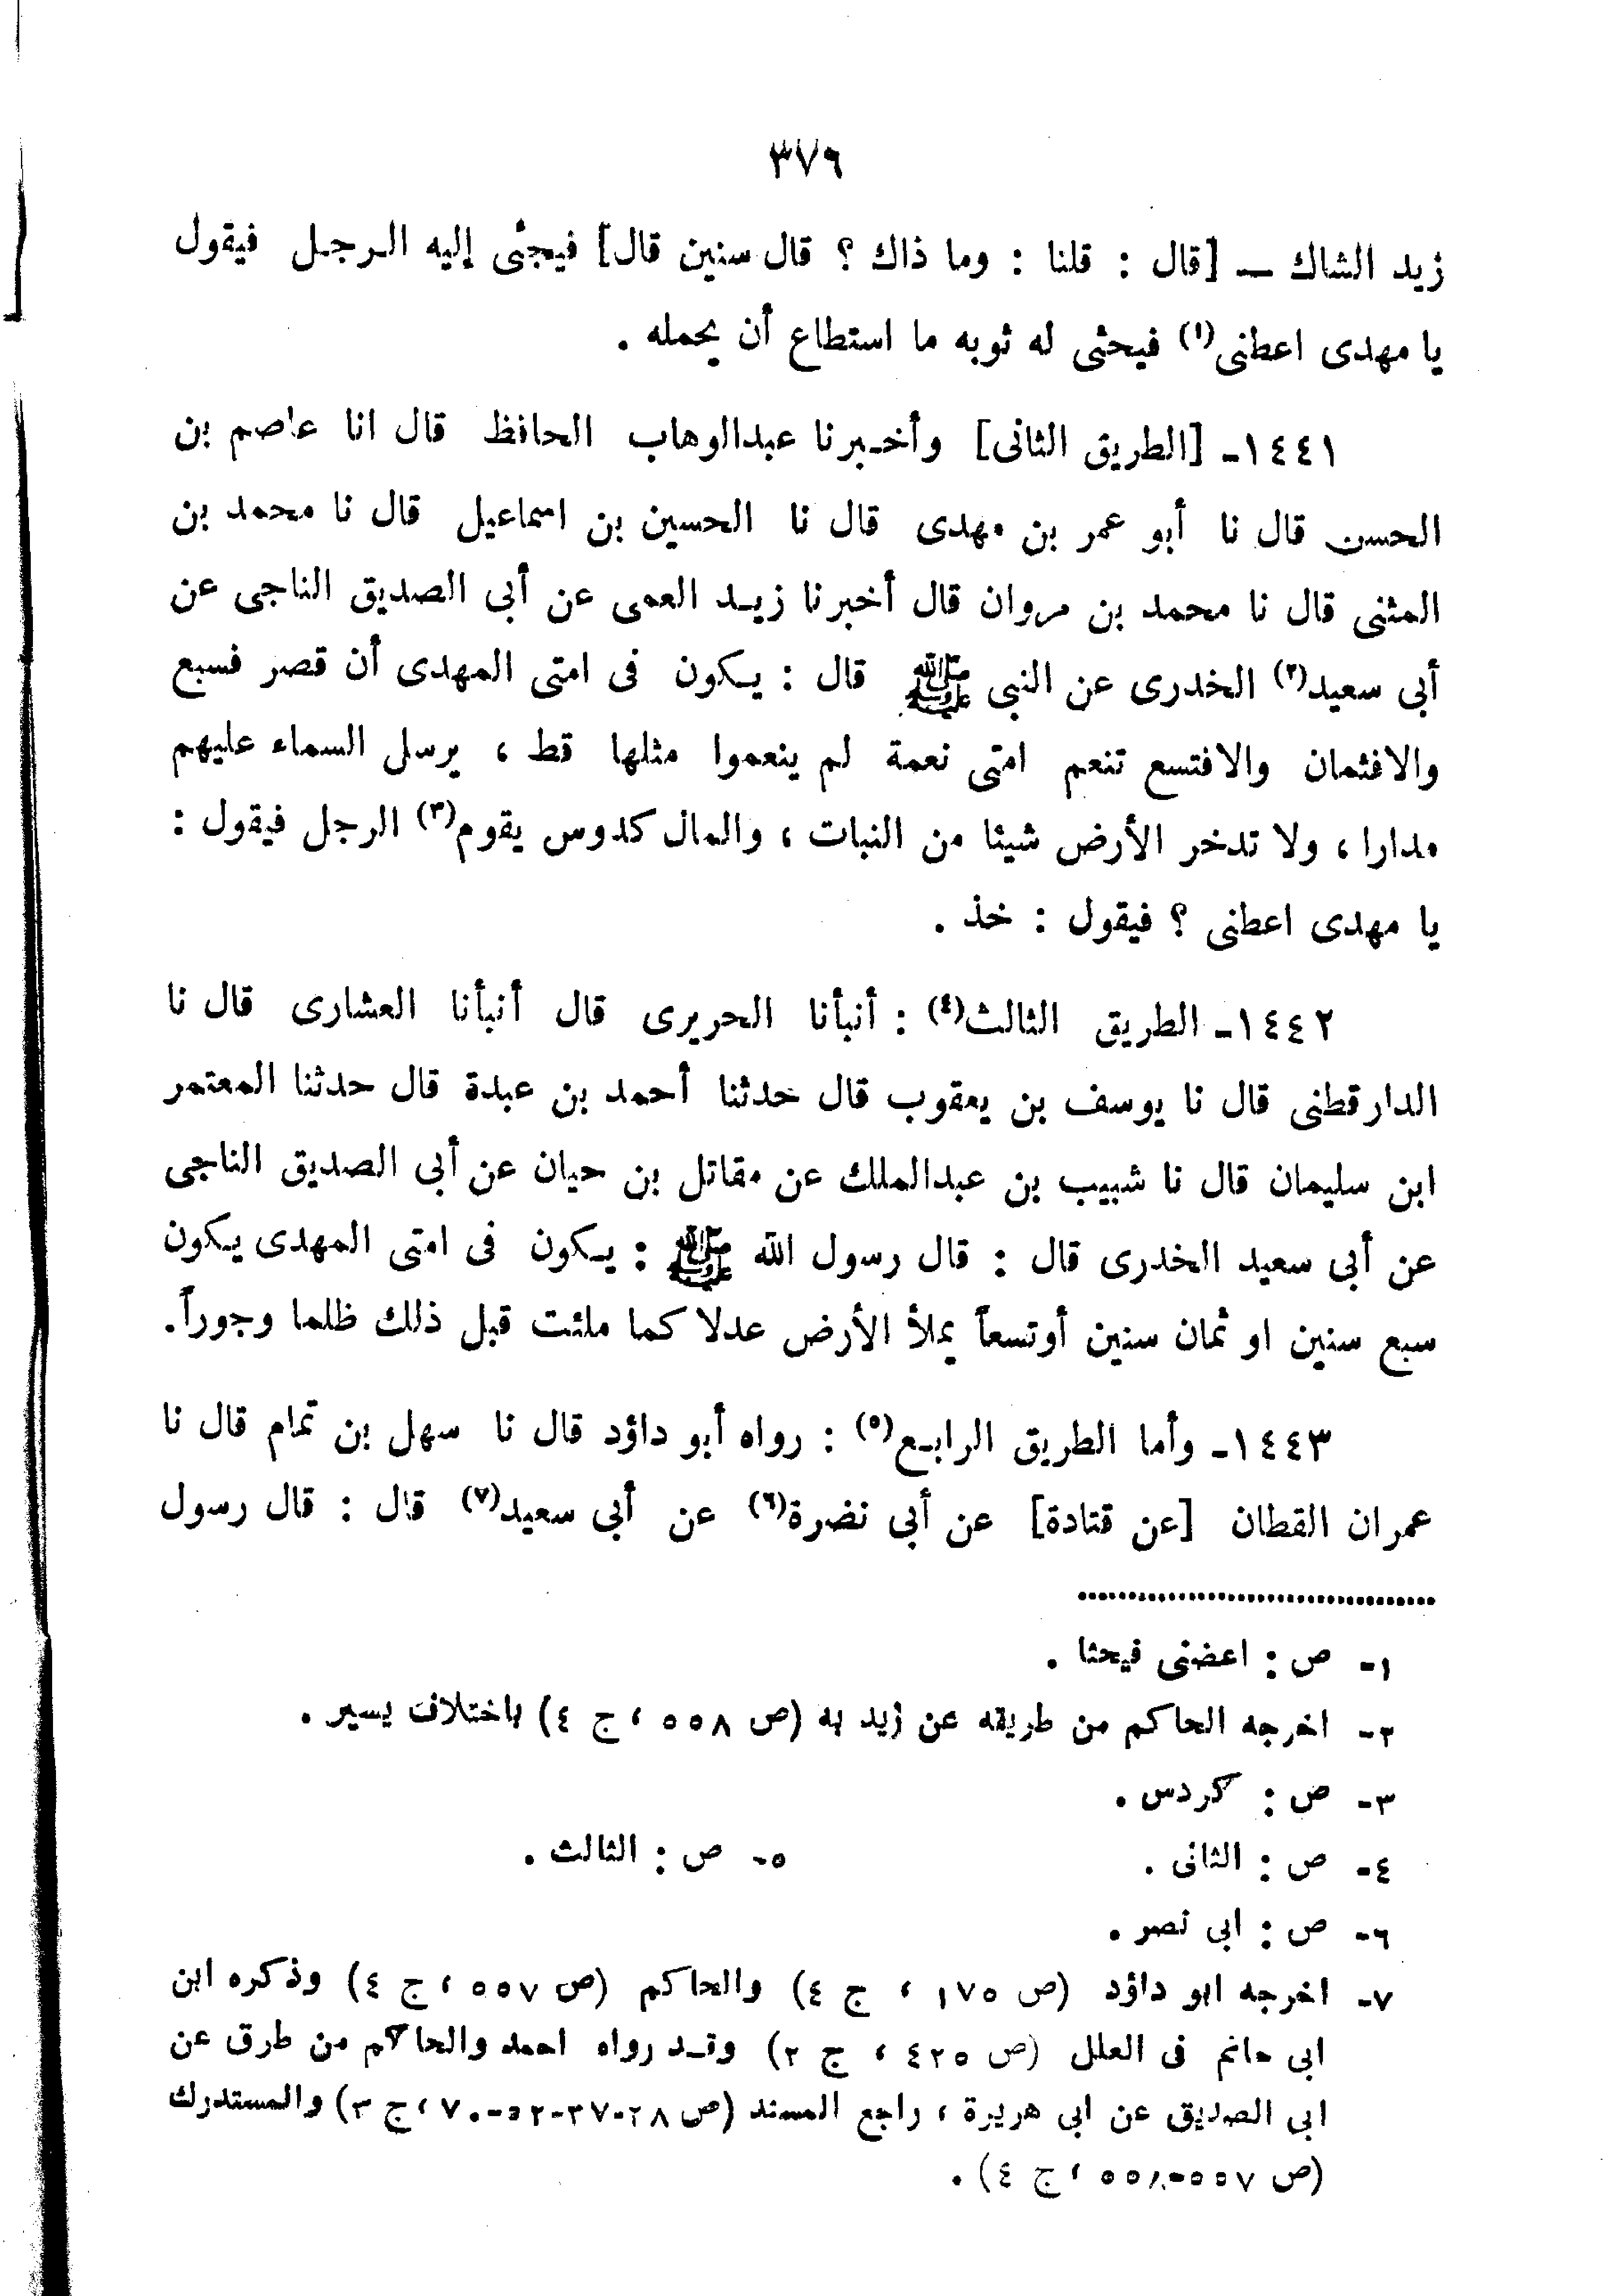 ٣٧٩
زيد الشاك ــ [قال : قلنا : وما ذاك ؟ قال سنين قال] فيجئى إليه الرجل فيقول
يا مهدى اعطنى(١) فيحثى له ثوبه ما استطاع أن يحمله .
١٤٤١ـ [الطريق الثانى] وأخبرنا عبدالوهاب الحافظ قال انا عاصم بن
الحسن قال نا أبو عمر بن مهدى قال نا الحسين بن اسماعيل قال نا محمد بن
المثنى قال نا محمد بن مروان قال أخبرنا زيد العمى عن أبى الصديق الناجى عن
أبى سعيد(٢) الخدرى عن النبى ﷺ قال : يكون فى امتى المهدى أن قصر فسبع
والافثمان والافتسع تنعم امتى نعمة لم ينعموا مثلها قط ، يرسل السماء عليهم
مدارا ، ولا تدخر الأرض شيئا من النبات ، والمال كدوس يقوم(٣) الرجل فيقول :
يا مهدى اعطنى ؟ فيقول : خذ .
١٤٤٢ـ الطريق الثالث(٤) : أنبأنا الحريرى قال أنبأنا العشارى قال نا
الدارقطنى قال نا يوسف بن يعقوب قال حدثنا أحمد بن عبدة قال حدثنا المعتمر
ابن سليمان قال نا شبيب بن عبدالملك عن مقاتل بن حيان عن أبى الصديق الناجى
عن أبى سعيد الخدرى قال : قال رسول الله ﷺ : يكون فى امتى المهدى يكون
سبع سنين او ثمان سنين أوتسعاً يملأ الأرض عدلا كما ملئت قبل ذلك ظلما وجوراً.
١٤٤٣ـ وأما الطريق الرابع(٥) : رواه أبو داؤد قال نا سهل بن تمام قال نا
عمران القطان [عن قتادة] عن أبى نضرة(٦) عن أبى سعيد(٧) قال : قال رسول
١- ص : اعضنى فيحثا .
٢- اخرجه الحاكم من طريقه عن زيد به (ص ٥٥٨ ، ج ٤) باختلاف يسير .
٣- ص : كردس .
٤- ص : الثانى . ٥- ص : الثالث .
٦- ص : ابى نصر .
٧- اخرجه ابو داؤد (ص ١٧٥ ، ج ٤) والحاكم (ص ٥٥٧ ، ج ٤) وذكره ابن
ابى حاتم فى العلل (ص ٤٢٥ ، ج ٢) وقد رواه احمد والحاكم من طرق عن
ابى الصديق عن ابى هريرة ، راجع المسند (ص ٢٨-٣٧-٥٢-٧٠ ، ج ٣) والمستدرك
(ص ٥٥٧-٥٥٨ ، ج ٤) .